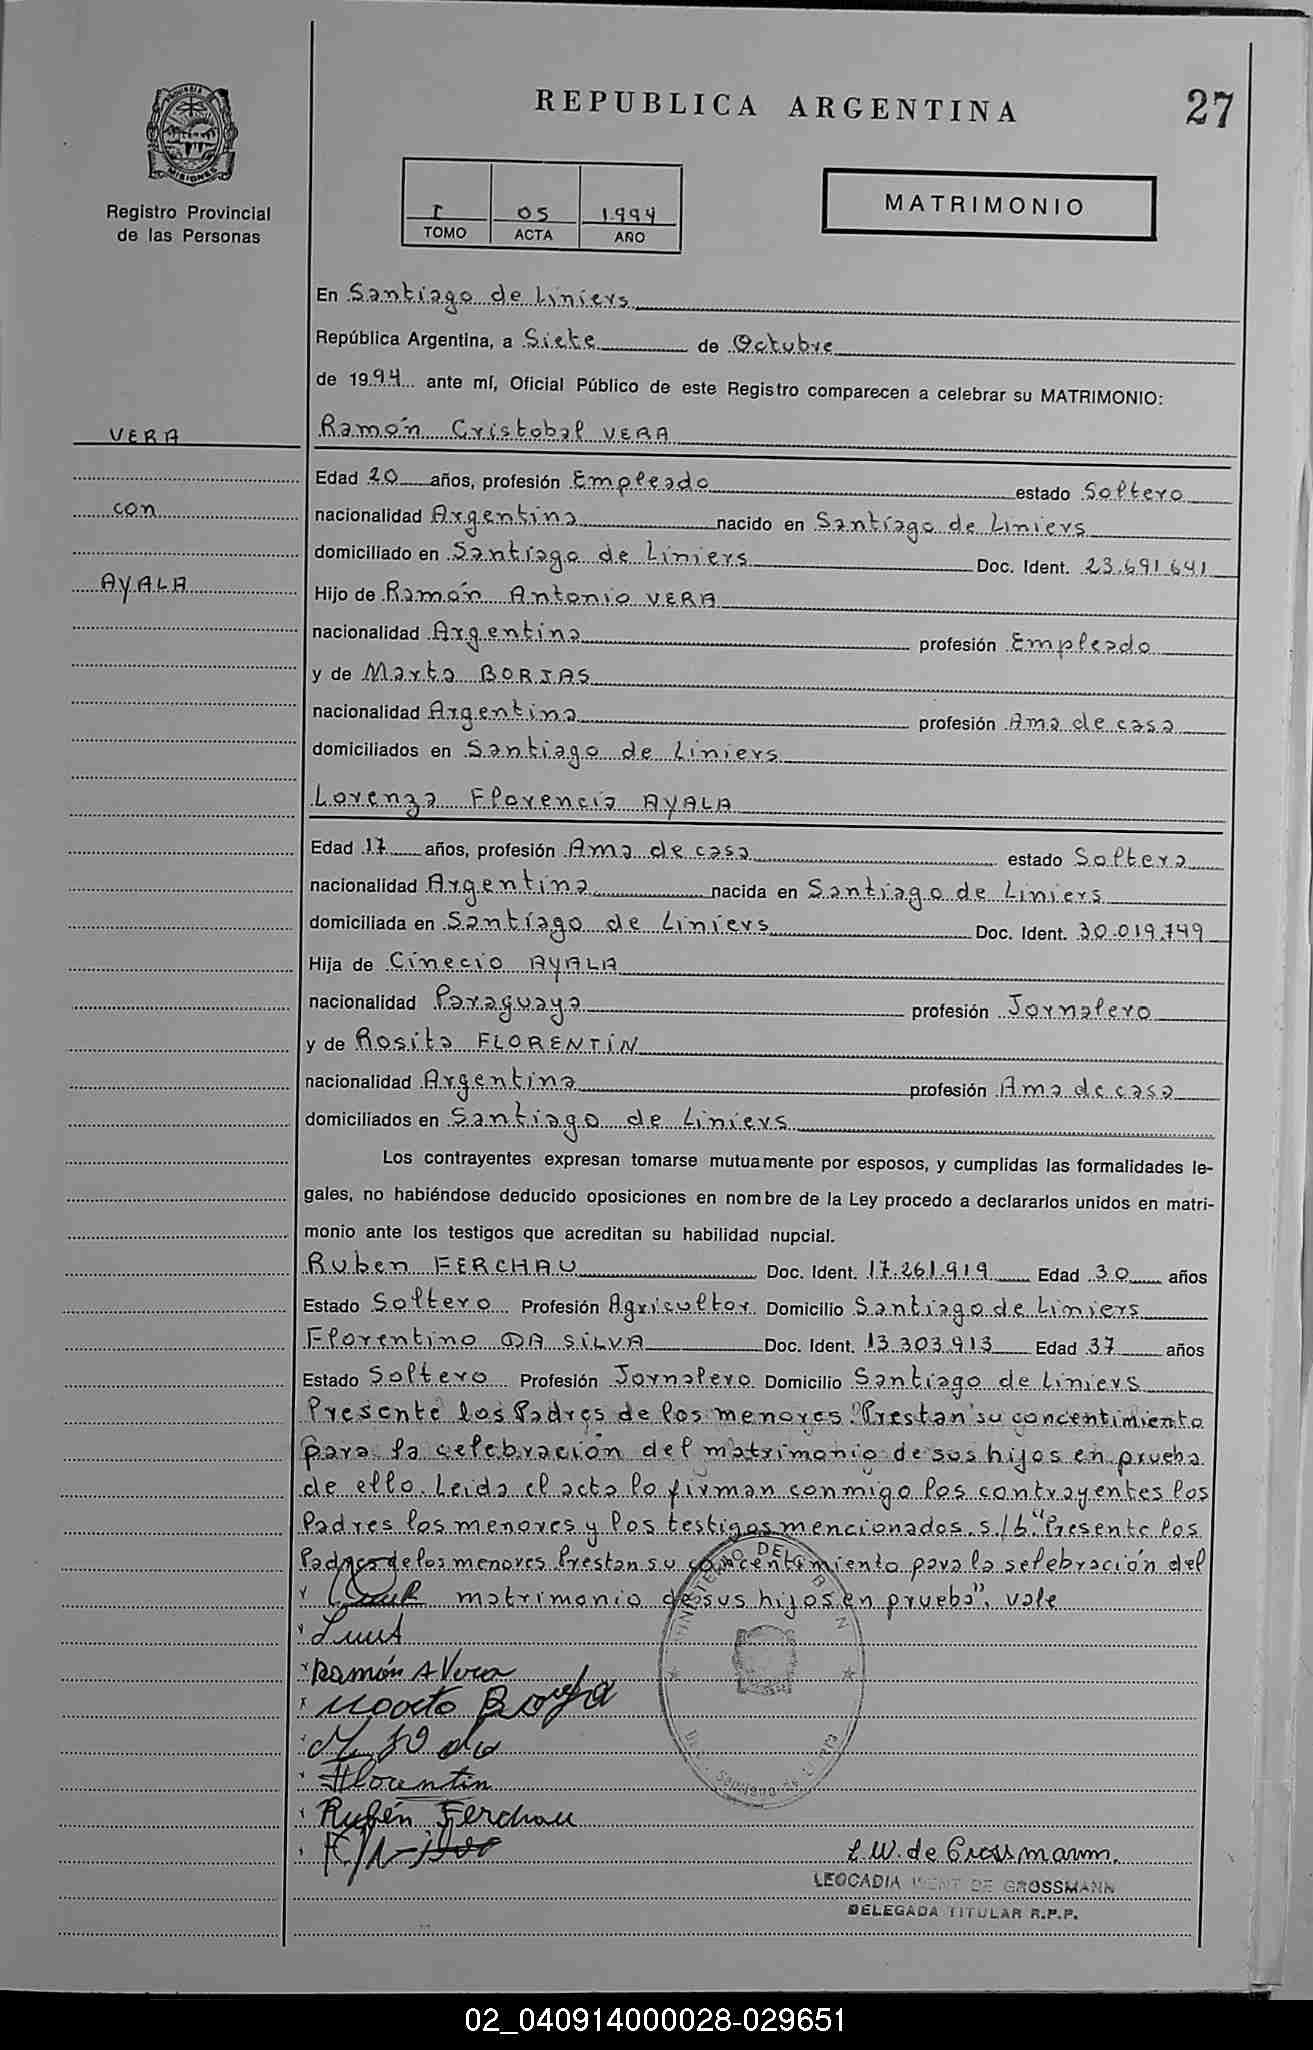 REPUBLICA ARGENTINA
27
PROVINCIA DE
MISIONES
Registro Provincial
de las Personas
I 05 1994
TOMO ACTA AÑO
MATRIMONIO
En Santiago de Liniers
República Argentina, a Siete de Octubre
de 1994 ante mí, Oficial Público de este Registro comparecen a celebrar su MATRIMONIO:
VERA
Ramón Cristobal VERA
Edad 20 años, profesión Empleado estado Soltero
con
nacionalidad Argentina nacido en Santiago de Liniers
domiciliado en Santiago de Liniers Doc. Ident. 23.691.641
AYALA
Hijo de Ramón Antonio VERA
nacionalidad Argentina profesión Empleado
y de Marta BORJAS
nacionalidad Argentina profesión Ama de casa
domiciliados en Santiago de Liniers
Lorenza Florencia AYALA
Edad 17 años, profesión Ama de casa estado Soltera
nacionalidad Argentina nacida en Santiago de Liniers
domiciliada en Santiago de Liniers Doc. Ident. 30.019.749
Hija de Cinecio AYALA
nacionalidad Paraguaya profesión Jornalero
y de Rosita FLORENTIN
nacionalidad Argentina profesión Ama de casa
domiciliados en Santiago de Liniers
Los contrayentes expresan tomarse mutuamente por esposos, y cumplidas las formalidades le-
gales, no habiéndose deducido oposiciones en nombre de la Ley procedo a declararlos unidos en matri-
monio ante los testigos que acreditan su habilidad nupcial.
Ruben FERCHAU Doc. Ident. 17.261.919 Edad 30 años
Estado Soltero Profesión Agricultor Domicilio Santiago de Liniers
Florentino DA SILVA Doc. Ident. 13.303.913 Edad 37 años
Estado Soltero Profesión Jornalero Domicilio Santiago de Liniers
Presente los Padres de los menores. Prestan su concentimiento
para la celebración del matrimonio de sus hijos en prueba
de ello. Leida el acta lo firman conmigo los contrayentes los
Padres los menores y los testigos mencionados. s/b. "Presente los
Padres de los menores Prestan su concentimiento para la selebración del
matrimonio de sus hijos en prueba". vale
Ramón A Vera
Florentin
Rubén Ferchau
MINISTERIO DE
Santiago de
L W. de Grossmann.
LEOCADIA WENT DE GROSSMANN
DELEGADA TITULAR R.P.P.
02_040914000028-029651